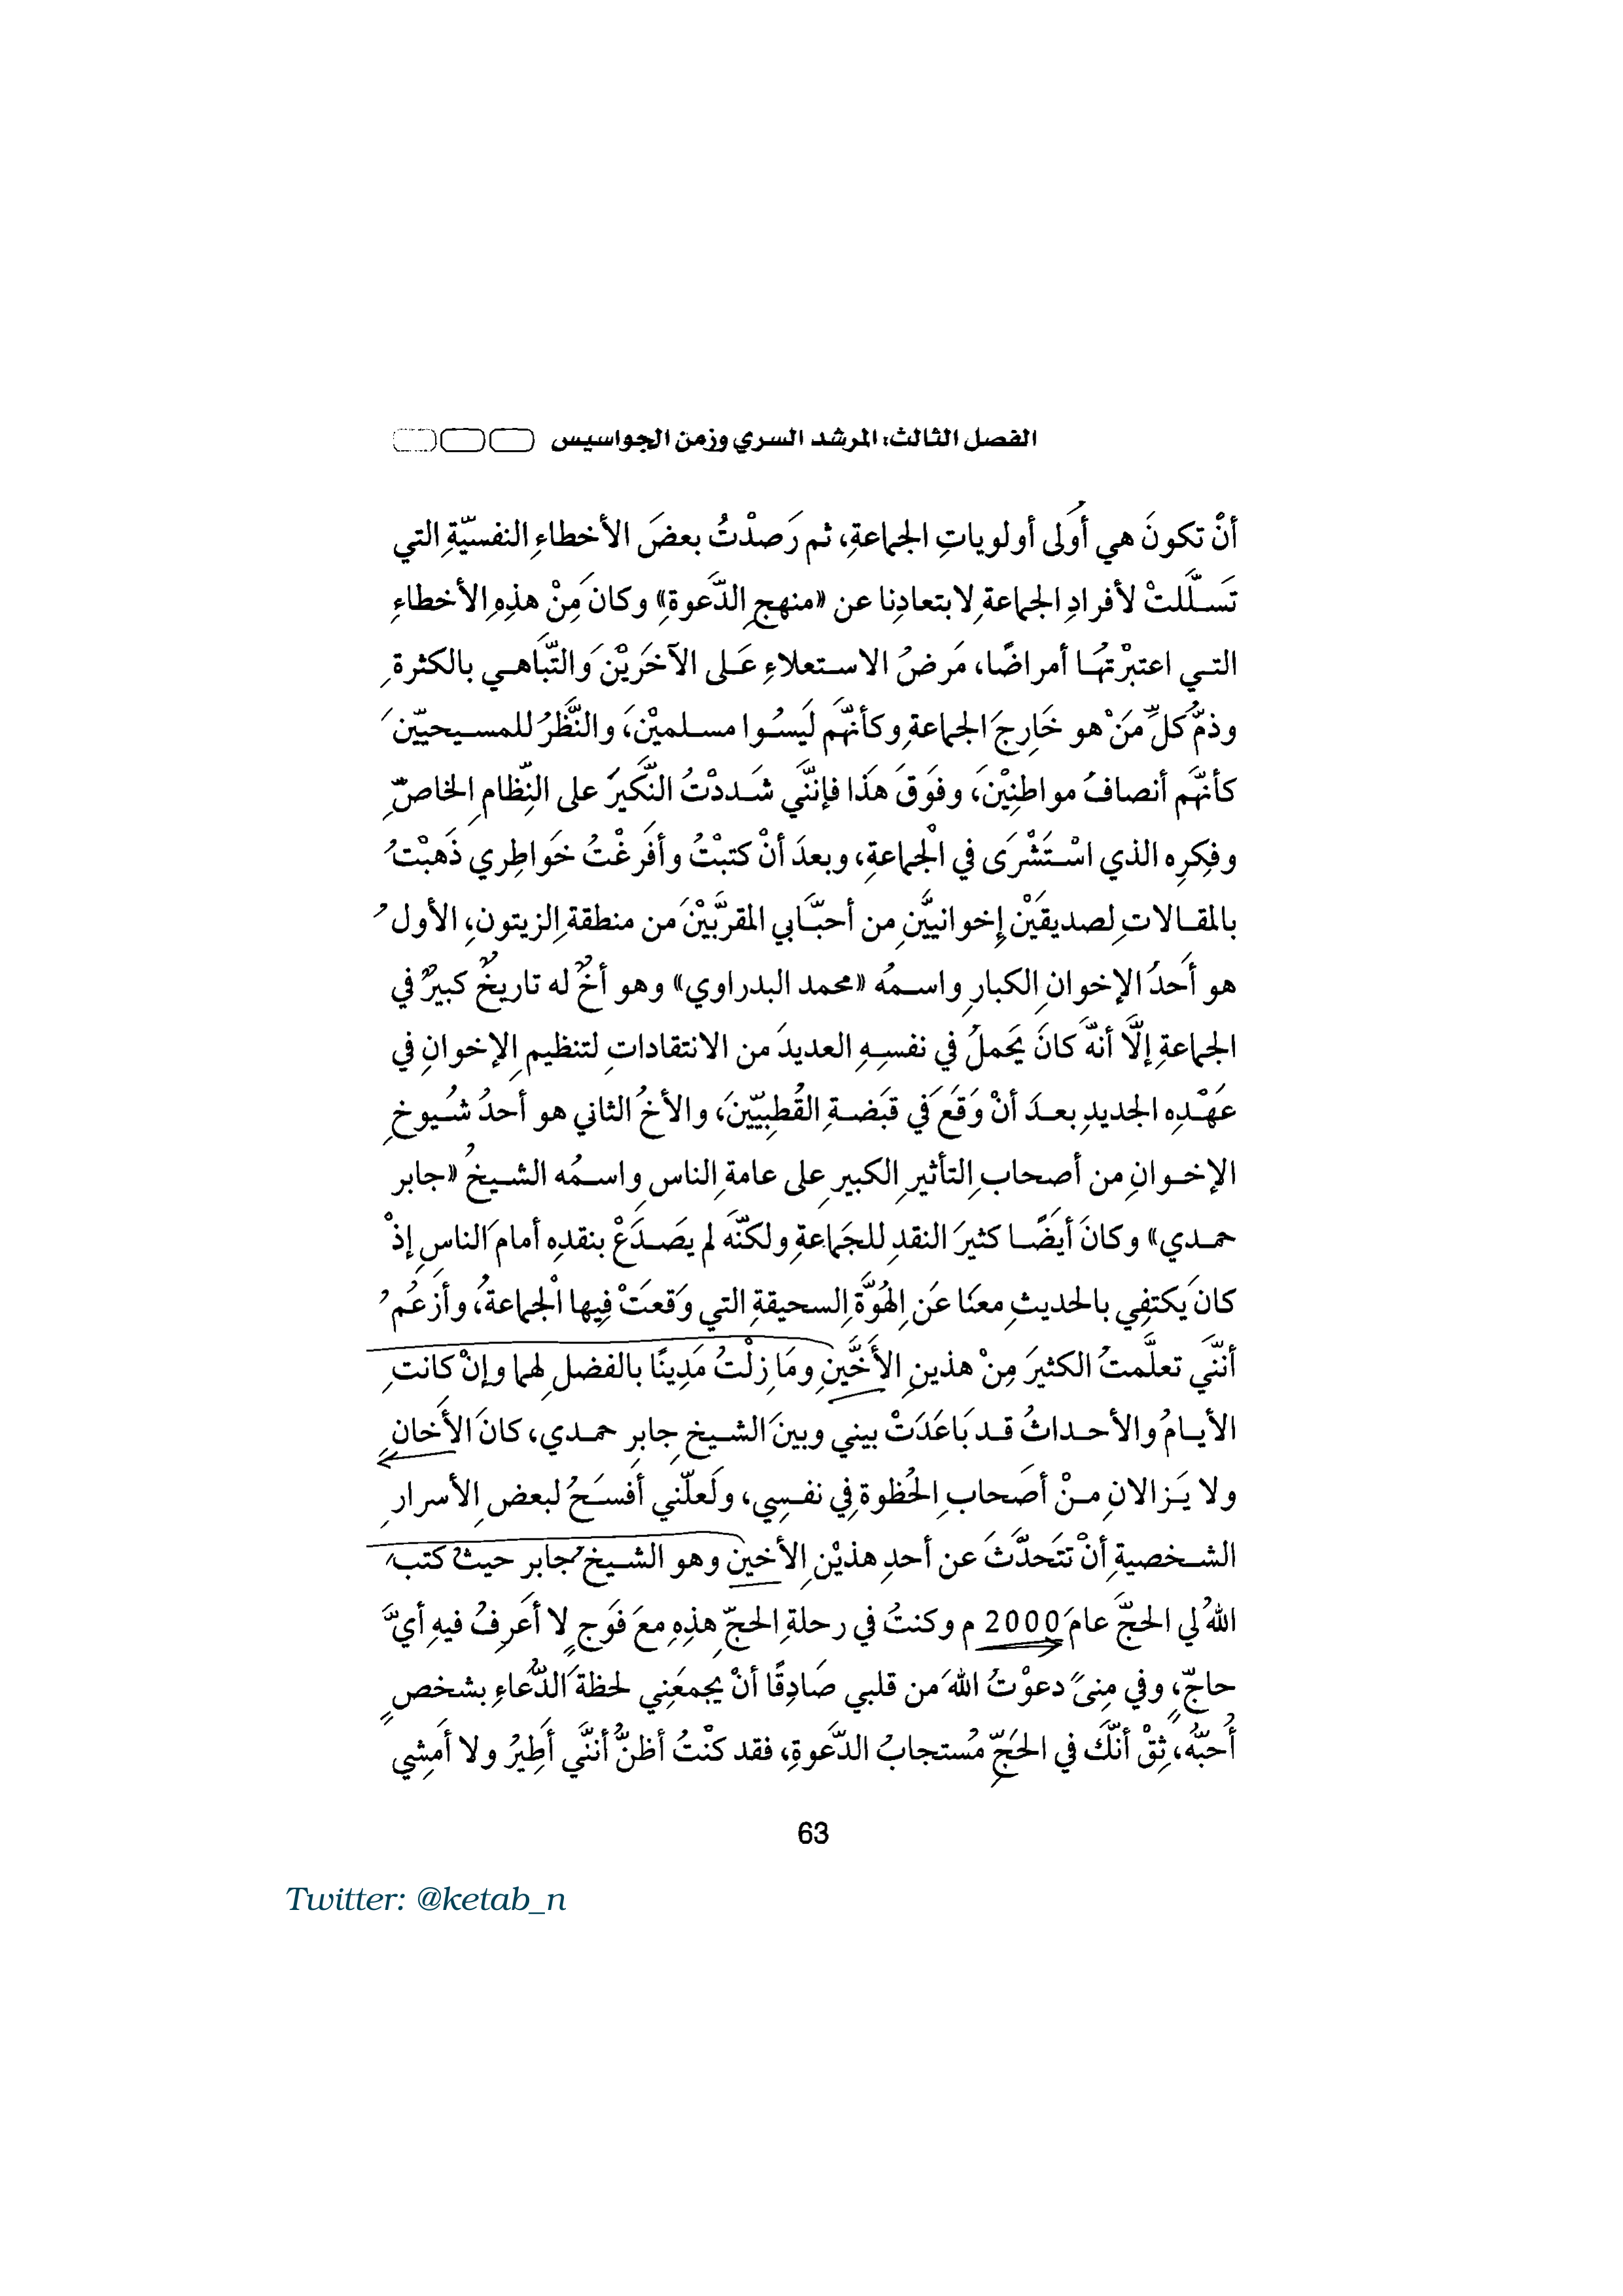 الفصل الثالث: المرشد السري وزمن الجواسيس
أنْ تكونَ هي أَولى أولوياتِ الجماعةِ، ثم رَصدْتُ بعضَ الأخطاءِ النفسيّةِ التي
تَسلَّلتْ لأفرادِ الجماعةِ لابتعادِنا عن «منهجِ الدَّعوةِ» وكانَ مِنْ هذِهِ الأخطاءِ
التي اعتبرْتُهَا أمراضًا، مَرضُ الاستعلاءِ عَلى الآخَرِيْنَ والتَّباهي بالكثرةِ
وذمُّ كلِّ مَنْ هو خَارِجَ الجماعةِ وكأنَّهم لَيسُوا مسلميْنَ، والنَّظرُ للمسيحيّينَ
كأنَّهم أنصافُ مواطنِيْنَ، وفوقَ هَذا فإنَّني شَددْتُ النَّكيرَ على النِّظامِ الخاصِّ
وفكرِه الذي اسْتَشْرَى في الْجماعةِ، وبعدَ أنْ كتبْتُ وأفَرغْتُ خَواطِري ذَهبْتُ
بالمقالاتِ لصديقَيْنِ إخوانيَّينِ من أحبَّابي المقرَّبيْنَ من منطقةِ الزيتونِ، الأولُ
هو أَحدُ الإخوانِ الكبارِ واسمُه «محمد البدراوي» وهو أخٌ له تاريخٌ كبيرٌ في
الجماعةِ إلَّا أنَّه كانَ يَحملُ في نفسِهِ العديدَ من الانتقاداتِ لتنظيمِ الإخوانِ في
عَهْدِه الجديدِ بعدَ أنْ وَقَعَ في قَبَضةِ القُطبِيّينَ، والأخُ الثاني هو أحدُ شُيوخِ
الإخوانِ من أصحابِ التأثيرِ الكبيرِ على عامةِ الناسِ واسمُه الشيخُ «جابر
حمدي» وكانَ أيضًا كثيرَ النقدِ للجَماعةِ ولكنَّه لم يصَدَعْ بنقدِه أمامَ الناسِ إذْ
كانَ يكتفِي بالحديثِ معنَا عَنِ الهُوَّةِ السحيقةِ التي وَقعَتْ فِيها الْجماعةُ، وأزعُمُ
أنَّني تعلَّمتُ الكثيرَ مِنْ هذينِ الأَخَّينِ ومَا زِلْتُ مَدِينًا بالفضلِ لهما وإنْ كانتِ
الأيامُ والأحداثُ قد بَاعَدَتْ بيني وبينَ الشيخِ جابرِ حمدي، كانَ الأَخانِ
ولا يَزالانِ مِنْ أصَحابِ الحُظوةِ في نفسِي، ولَعلّني أفَسحُ لبعضِ الأسرارِ
الشخصيةِ أنْ تتَحدَّثَ عن أحدِ هذيْنِ الأخينِ وهو الشيخُ جابر حيثُ كتبَ
اللهُ لي الحجَّ عامَ 2000 م وكنتُ في رحلةِ الحجِّ هذِهِ معَ فَوجٍ لا أعَرفُ فيهِ أيَّ
حاجٍّ، وفي مِنىً دعوْتُ اللهَ من قلبي صَادِقًا أنْ يجمعَنِي لحظةَ الدُّعاءِ بشخصٍ
أُحبُّه، ثِقْ أنَّكَ في الحَجِّ مُستجابُ الدَّعوةِ، فقد كنْتُ أظنُّ أننَّي أَطِيرُ ولا أمَشِي
63
Twitter: @ketab_n